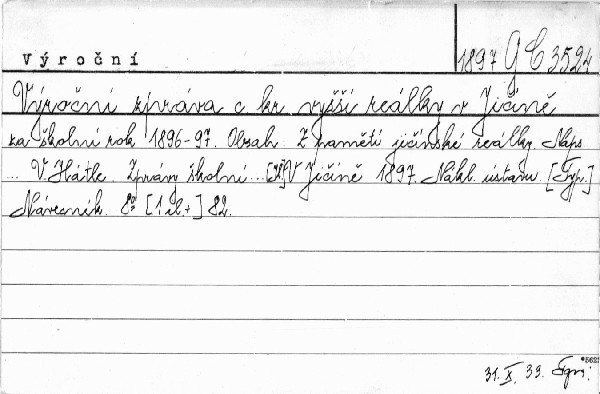 Výroční
1897 9 C 3524
Výroční zpráva c. kr. vyšší reálky v Jičíně
za školní rok 1896-97. Obsah: Z pamětí jičínské reálky. Naps.
... V. Hátle. Zprávy školní ... V Jičíně 1897. Nákl. ústavu. [Typ.]
Návesník. 8° [1 il.+] 82.
31. X. 33.